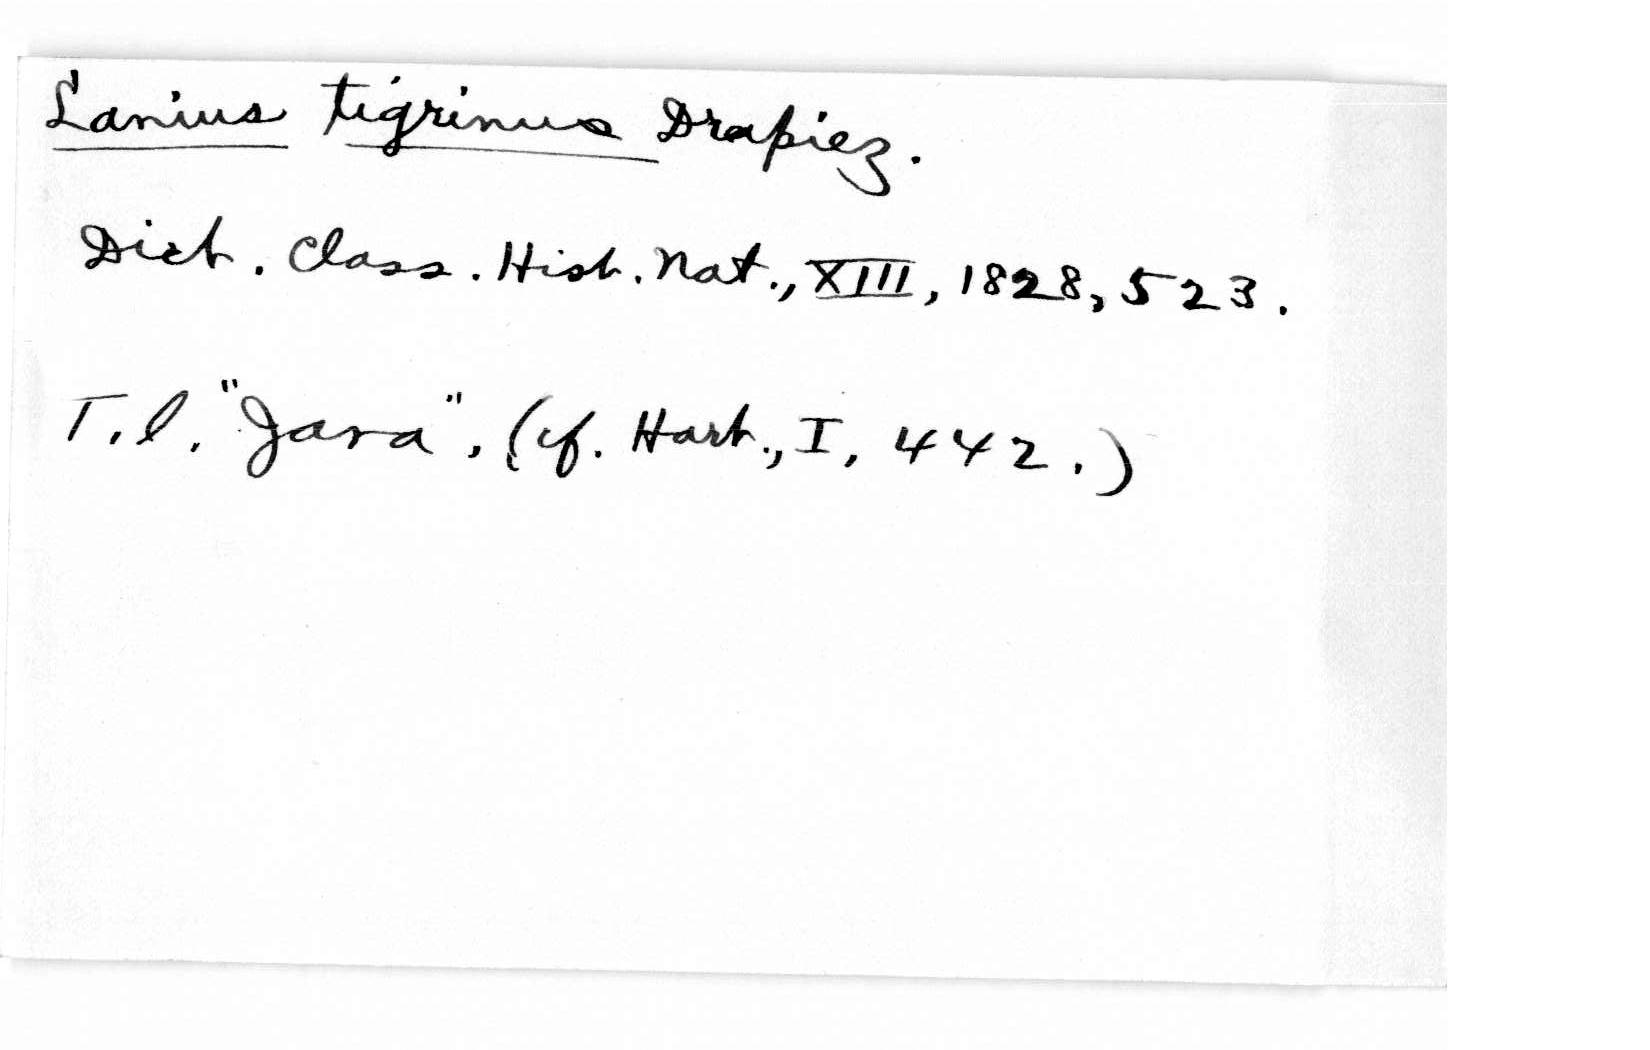 Lanius tigrinus Drapiez.
Dict. Class. Hist. Nat., XIII, 1828, 523.
T. l. "Java", (cf. Hart., I, 442.)